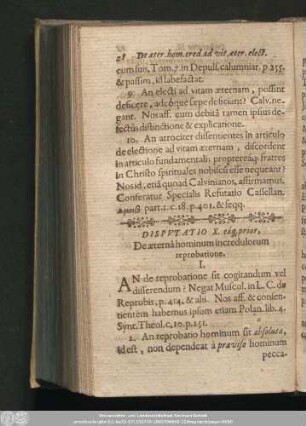 28 De æter. hom. cred. ad vit. æter. elect.
cumsuis, Tom. 7. in Depuls. calumniar. p. 255.
& passim, id labefactat.
9. An electi ad vitam æternam, possint
deficere, adeóque sæpe deficiant? Calv. ne-
gant. Nos aff. cum debitâ tamen ipsius de-
fectûs distinctione & explicatione.
10. An atrociter dissentientes in articulo
de electione ad vitam æternam, discordent
in articulo fundamentali: proptereaq́; fratres
in Christo spirituales nobiscū esse nequeant?
Nos id, etiā quoad Calvinianos, affirmamus.
Conferatur Specialis Refutatio Cassellan.
part. 1. c. 18. p. 401. & seqq.
DISPVTATIO X. prior,
De æternâ hominum incredulorum
reprobatione.
I.
AN de reprobatione sit cogitandum vel
disserendum? Negat Muscul. in L. C. de
Reprobis, p. 414, & alii. Nos aff. & consen-
tientem habemus ipsum etiam Polan. lib. 4.
Synt. Theol. c. 10. p. 251.
2. An reprobatio hominum sit absoluta,
id est, non dependeat à prævisis hominum
pecca-